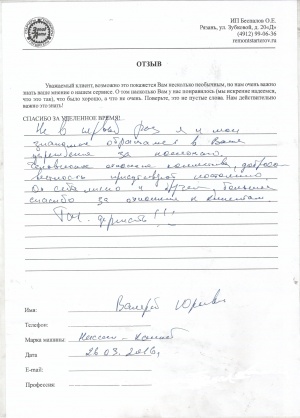 ИП Беспалов О.Е.
Рязань, ул. Зубковой, д. 20«Д»
(4912) 99-06-36
remontstartera.ru
ОТЗЫВ
Уважаемый клиент, возможно это покажется Вам несколько необычным, но нам очень важно
знать ваше мнение о нашем сервисе. О том насколько Вам у нас понравилось (мы искренне надеемся,
что это так), что было хорошо, а что не очень. Поверьте, что не пустые слова. Нам действительно
важно это знать!
СПАСИБО ЗА УДЕЛЕННОЕ ВРЕМЯ!
Не в первый раз я и мои
знакомые обращаемся в Ваше
учреждение за помощью.
отношение коллектива, добросо-
вестность присутствуют постоянно.
От себя лично и друзей, большое
спасибо за отношение к клиентам.
Так держать!!!
Имя: Валерий Юрьевич
Телефон:
Марка машины:
Дата 26.03.2016г.
E-mail:
Профессия: